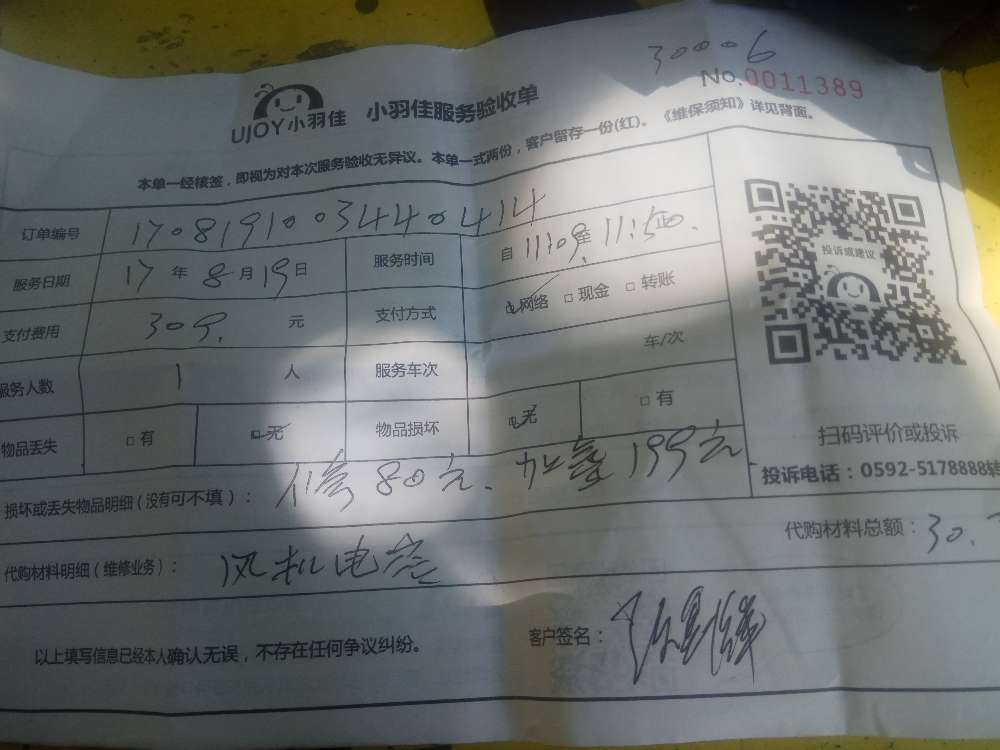 30006
No.0011389
UJOY小羽佳 小羽佳服务验收单
本单一经核签，即视为对本次服务验收无异议。本单一式两份，客户留存一份(红)。《维保须知》详见背面。
订单编号 17081910034440414
服务日期 17 年 8 月 19 日 服务时间 自 11:09 至 11:50.
支付费用 309. 元 支付方式 □网络 □现金 □转账
服务人数 1 人 服务车次 车/次
物品丢失 □有 □无 物品损坏 □无 □有
投诉或建议
扫码评价或投诉
投诉电话：0592-5178888转
损坏或丢失物品明细（没有可不填）： 修 80元、加氟 199元
代购材料明细（维修业务）： 风机电容 代购材料总额：30.
以上填写信息已经本人确认无误，不存在任何争议纠纷。 客户签名：